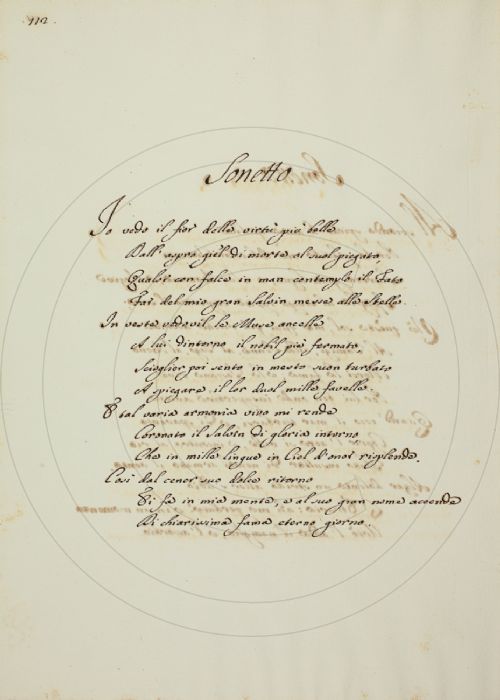 112.
Sonetto
Io vedo il fior delle virtù più belle
Dall' aspro giel di morte al suol piegato,
Qualor con falce in man contemplo il Fato
Far del mio gran Salvin messe alle Stelle.
In veste vedovil le Muse ancelle
A lui dintorno il nobil piè fermato,
Scioglier poi sento in mesto suon turbato
A spiegare il lor duol mille favelle.
E tal varia armonia vivo mi rende
Coronato il Salvin di gloria intorno
Che in mille lingue in Ciel d'onor risplende.
Così dal cener suo dolce ritorno
Ei fa in mia mente, e al suo gran nome accende
Di chiarissima fama eterno giorno.